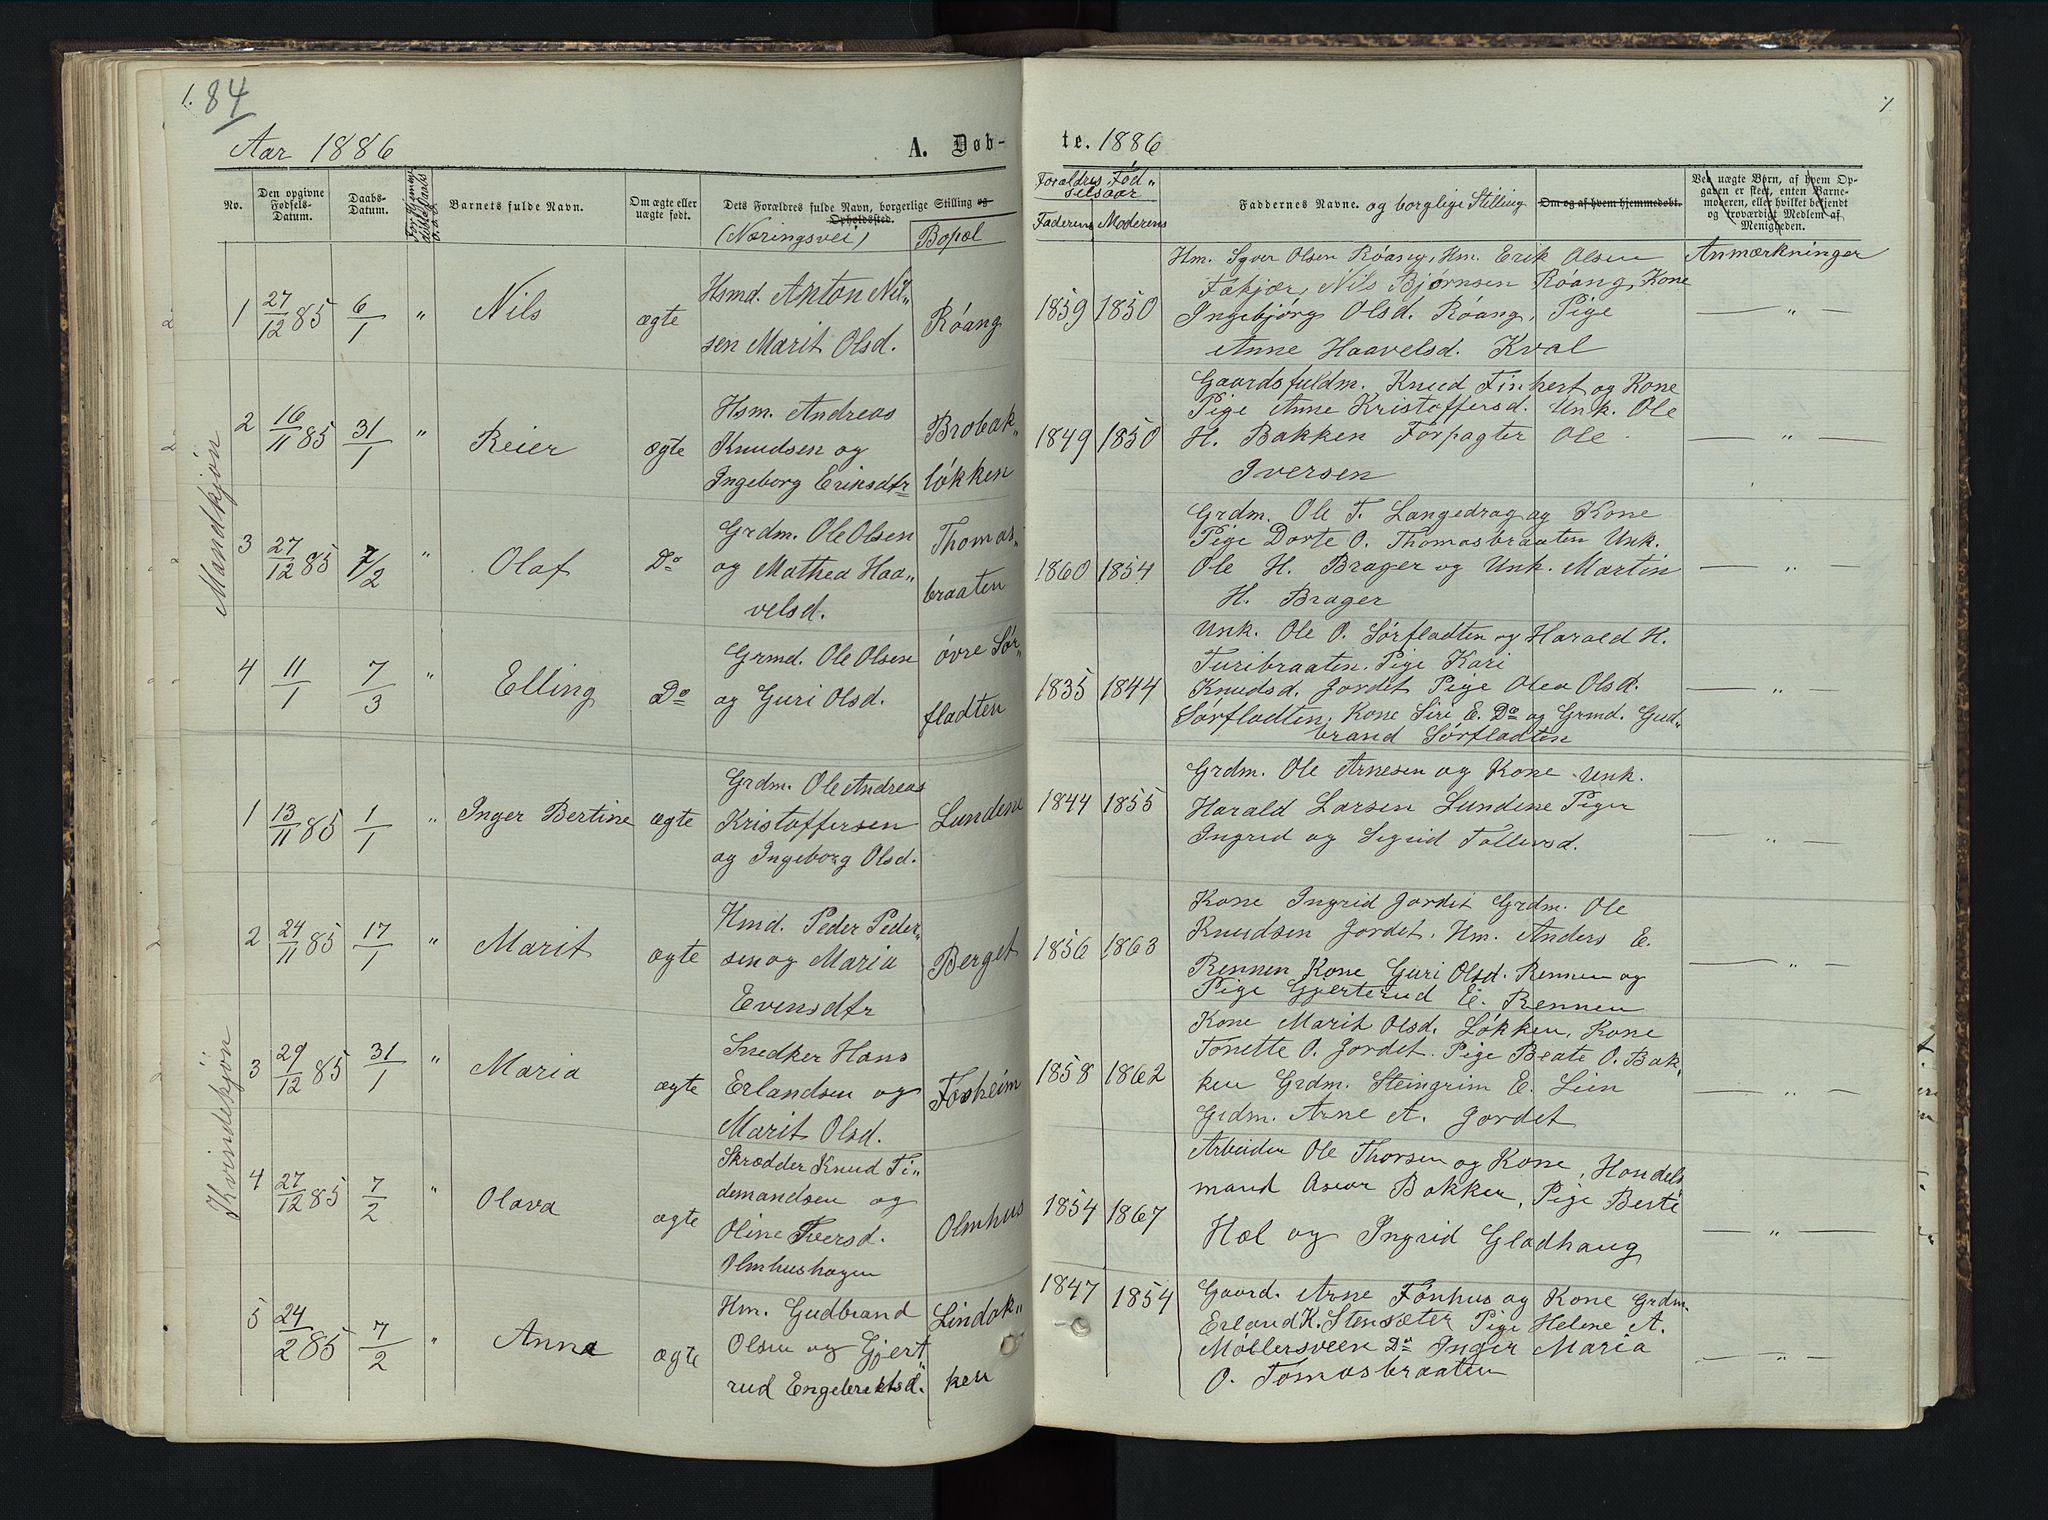 1.
84
Aar 1886
A. Døb-
te. 1886
1
No.
Den opgivne Fødsels-Datum.
Daabs-Datum.
Barnets fulde Navn.
Om ægte eller uægte født.
Dets Forældres fulde Navn, borgerlige Stilling og Opholdssted.
(Næringsvei)
Bopæl
Forældres Fød„
selsaar
Faderens Moderens
Faddernes Navne. og borglige Stilling
Om og af hvem hjemmedøbt.
Ved uægte Børn, af hvem Op-
gaven er skeet, enten Barne-
moderen, eller hvilket bekjendt
og troværdigt Medlem af
Menigheden.
Anmærkninger
Mandkjøn
1 27/12 85 6/1 „ Nils ægte
Hsmd. Anton Nil„
sen Marit Olsd.
Røang
1859 1850
Hm. Syver Olsen Røang, Hm. Erik Olsen
Fækjær, Nils Bjørnsen Røang, Kone
Ingebjørg Olsd. Røang, Pige
Anne Haavelsd. Kval
— „ —
2 16/11 85 31/1 „ Reier ægte
Hsm. Andreas
Knudsen og
Ingeborg Eriksdtr
Brobak„
løkken
1849 1850
Gaardsfuldm. Knud Finhert og Kone
Pige Anne Kristoffersd. Unk. Ole
H. Bakken Forpagter Ole
Iversen
— „ —
3 27/12 85 7/2 „ Olaf Do
Grdm. Ole Olsen
og Mathea Haa„
velsd.
Thomas„
braaten
1860 1854
Grdm. Ole T. Langedrag og Kone
Pige Dorte O. Thomasbraaten Unk.
Ole H. Brager og Unk. Martin
H. Brager
— „ —
4 11/1 7/3 „ Elling Do
Grmd. Ole Olsen
og Guri Olsd.
øvre Sør„
fladten
1835 1844
Unk. Ole O. Sørfladten og Harald H.
Turibraaten. Pige Kari
Knudsd. Jordet Pige Olea Olsd.
Sørfladten, Kone Siri E. Do og Grmd. Gud„
brand Sørfladten
— „ —
Kvindekjøn
1 13/11 85 1/1 „ Inger Bertine ægte
Grdm. Ole Andreas
Kristoffersen
og Ingeborg Olsd.
Lundene
1844 1855
Grdm. Ole Arnesen og Kone Unk.
Harald Larsen Lundene Piger
Ingrid og Sigrid Tollevsd.
— „ —
2 24/11 85 17/1 „ Marit ægte
Hmd. Peder Peder„
sen og Maria
Evensdtr
Berget
1856 1863
Kone Ingrid Jordet Grdm. Ole
Knudsen Jordet, Hm. Anders E.
Rennen Kone Guri Olsd. Rennen og
Pige Gjerterud E. Rennen
— „ —
3 29/12 85 31/1 „ Maria ægte
Snedker Hans
Erlandsen og
Marit Olsd.
Fosheim
1858 1862
Kone Marit Olsd. Løkken, Kone
Tonette O. Jordet. Pige Beate O. Bak„
ken Grdm. Steingrim E. Lien
Grdm. Arne A. Jordet
— „ —
4 27/12 85 7/2 „ Olava ægte
Skrædder Knud Ti„
demandsen og
Oline Iversd.
Olmhushagen
Olmhus
1854 1867
Arbeider Ole Thorsen og Kone, Handels
mand Asvor Bakker, Pige Berte
Hæl og Ingrid Gladhaug
— „ —
5 24/2 85 7/2 „ Anne ægte
Hm. Gudbrand
Olsen og Gjert„
rud Engebrektsd.
Lindak„
ken
1847 1854
Gaard. Arne Fønhus og Kone Grdm.
Erland K. Stensæter Pige Helene A.
Møllersveen Do Inger Maria
O. Tomasbraaten
— „ —